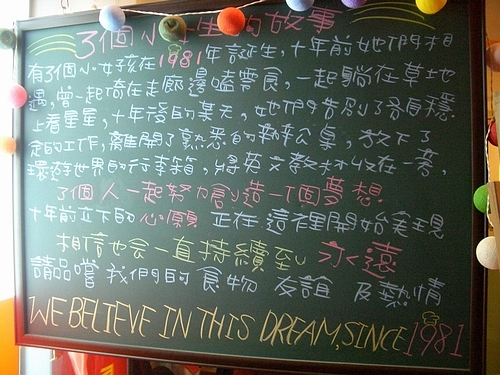 3個小女生的故事
有3個小女孩在1981年誕生,十年前她們相
遇,曾一起倚在走廊邊嗑零食,一起躺在草地
上看星星,十年後的某天,她們告別了各自穩
定的工作,離開了熟悉的辦公桌,放下了
環遊世界的行李箱,將英文教材收在一旁,
3個人一起努力創造一個夢想
十年前立下的心願 正在這裡開始實現
相信也会一直持續到永遠
請品嚐我們的食物 友誼 及熱情
WE BELIEVE IN THIS DREAM, SINCE 1981